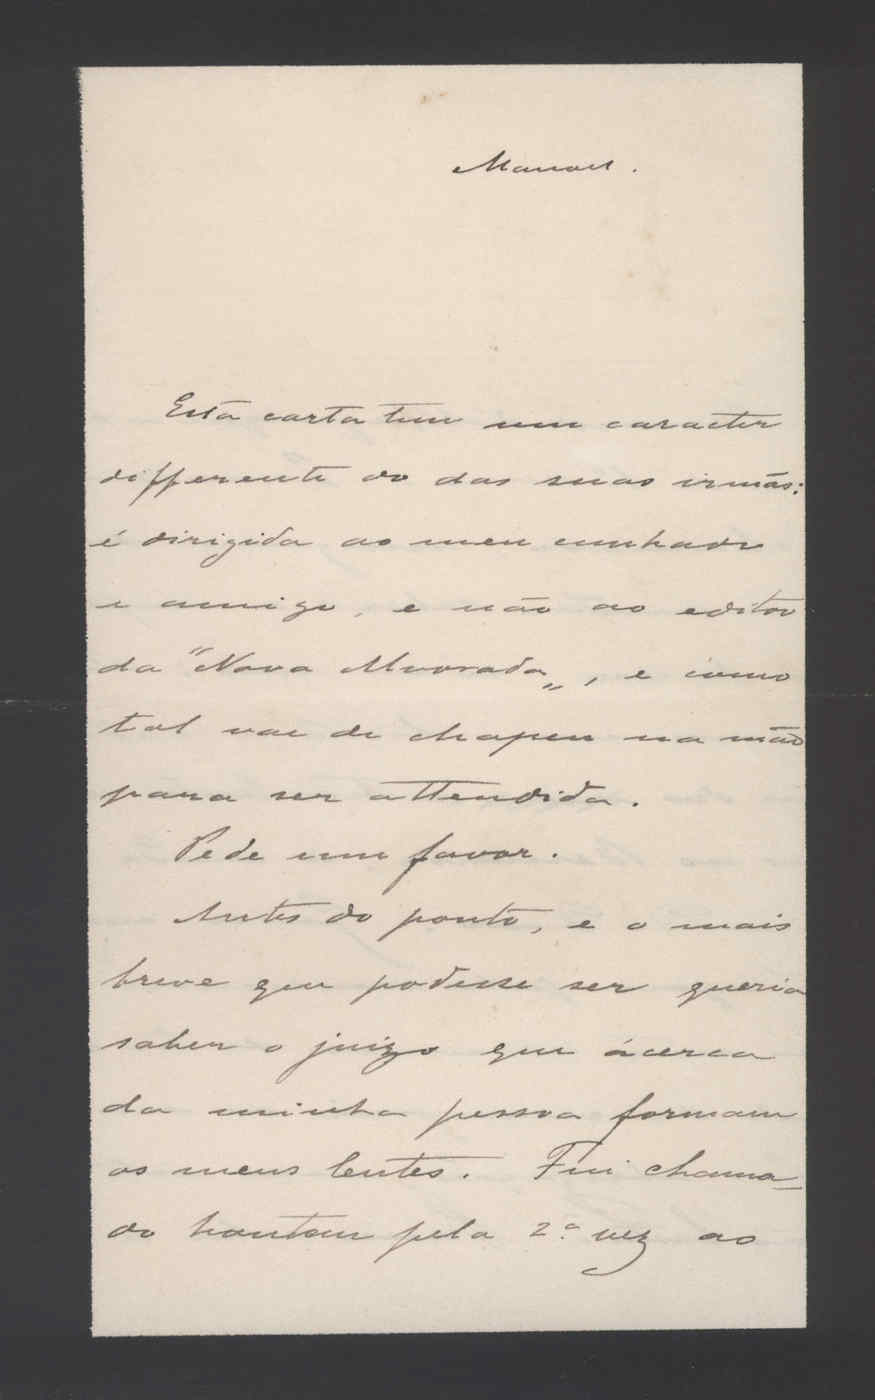 Manoel.
Esta carta tem um caracter
differente do das suas irmãs:
é dirigida ao meu cunhado
e amigo, e não ao editor
da "Nova Alvorada„, e como
tal vae de chapeu na mão
para ser attendida.
Pede um favor.
Antes do ponto, e o mais
breve que podesse ser queria
saber o juizo que ácerca
da minha pessoa formam
os meus lentes. Fui chama-
do hontem pela 2.ª vez ao